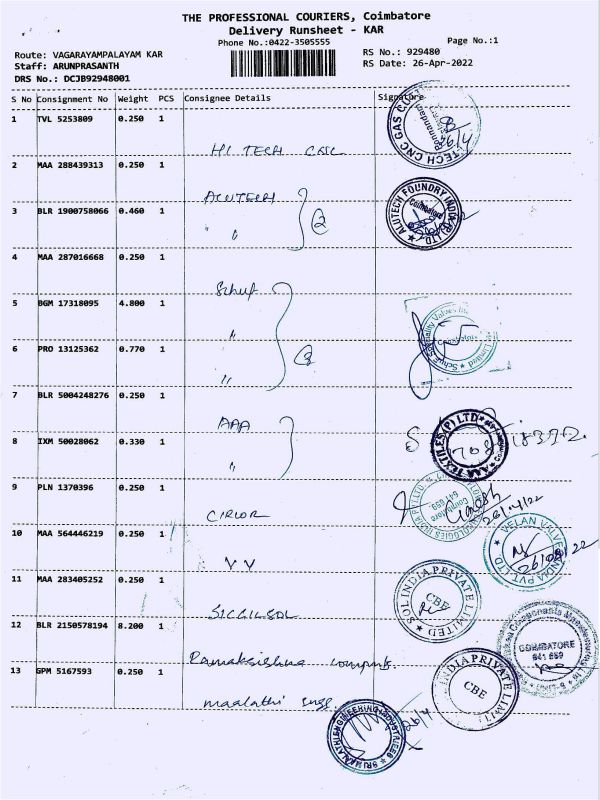 THE PROFESSIONAL COURIERS, Coimbatore
Delivery Runsheet - KAR
Phone No.:0422-3505555
Page No.:1
Route: VAGARAYAMPALAYAM KAR
RS No.: 929480
Staff: ARUNPRASANTH
RS Date: 26-Apr-2022
DRS No.: DCJB92948001
S No Consignment No Weight PCS Consignee Details Signature
1 TVL 5253809 0.250 1
HI TECH CNC
26/4
2 MAA 288439313 0.250 1
ACUTECH
ALUTECH FOUNDRY INDIA (P) LTD. Coimbatore
3 BLR 1900758066 0.460 1
" "
4 MAA 287016668 0.250 1
Schuf
5 BGM 17318095 4.800 1
"
6 PRO 13125362 0.770 1
"
7 BLR 5004248276 0.250 1
AAA
AAA TEXTILES (P) LTD
8 IXM 50028062 0.330 1
"
9 PLN 1370396 0.250 1
CIRLOR
26/4/22
10 MAA 564446219 0.250 1
V V
11 MAA 283405252 0.250 1
SICGILSOL
SOL INDIA PRIVATE LIMITED CBE
12 BLR 2150578194 8.200 1
Ramakrishna compnts.
COIMBATORE
641 659
13 GPM 5167593 0.250 1
INDIA PRIVATE LIMIT CBE
maalathi engg
26/4